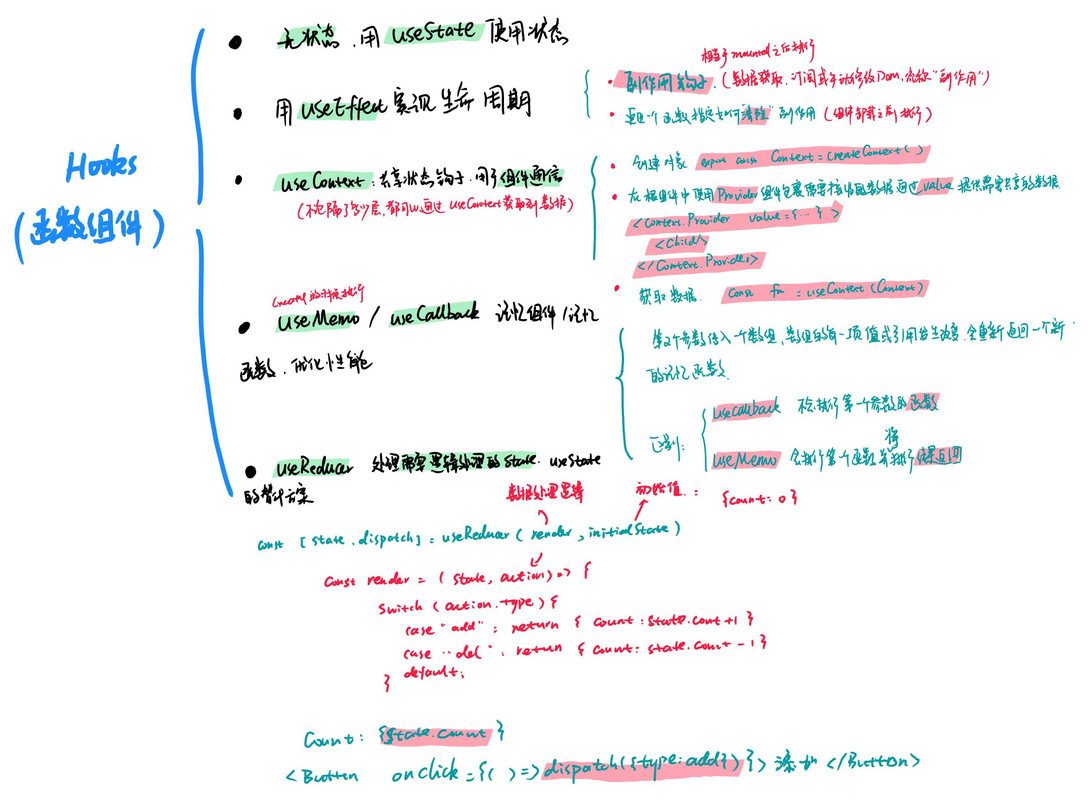 Hooks
(函数组件)
无状态,用 useState 使用状态
用 useEffect 实现生命周期
相当于mounted之后执行
副作用钩子,(数据获取,订阅或手动修改Dom,统称"副作用")
返回一个函数指定如何"清除"副作用(组件卸载之前执行)
useContext:共享状态钩子,用于组件通信
(不论隔了多少层,都可以通过 useContext 获取到数据)
创建对象 export const Context = createContext()
在根组件中使用Provider组件包裹需要接收的数据通过value提供需要共享的数据
<Context.Provider value={...}>
<Child>
</Context.Provider>
获取数据. const fn = useContext(Context)
的时候执行
useMemo / useCallback 记忆组件/记忆
函数,优化性能
第2个参数传入一个数组,数组的每一项值或引用发生改变,会重新返回一个新
的记忆函数.
区别:
useCallback 不会执行第一个参数的函数
将
useMemo 会执行第一个函数并执行结果返回
useReducer 处理需要逻辑处理的state. useState
的替代方案
数据处理逻辑
初始值: {count:0}
const [state,dispatch] = useReducer(render,initialState)
const render = (state, action) => {
switch (action.type) {
case "add": return { count: state.cout+1 }
case "del": return { count: state.count-1 }
default;
}
Count: {state.count}
<Button onclick={()=>dispatch({type:add})}>添加</Button>